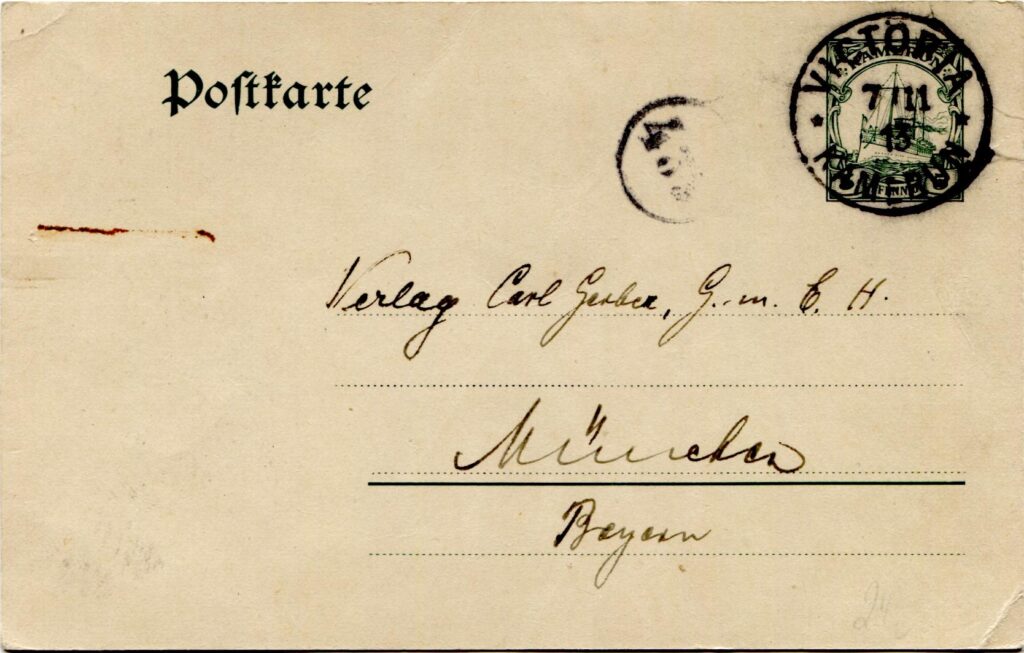 Postkarte
VICTORIA
KAMERUN
7/11
13
KAMERUN
PFENNIG
Verlag Carl Gerber, G. m. b. H.
München
Bayern